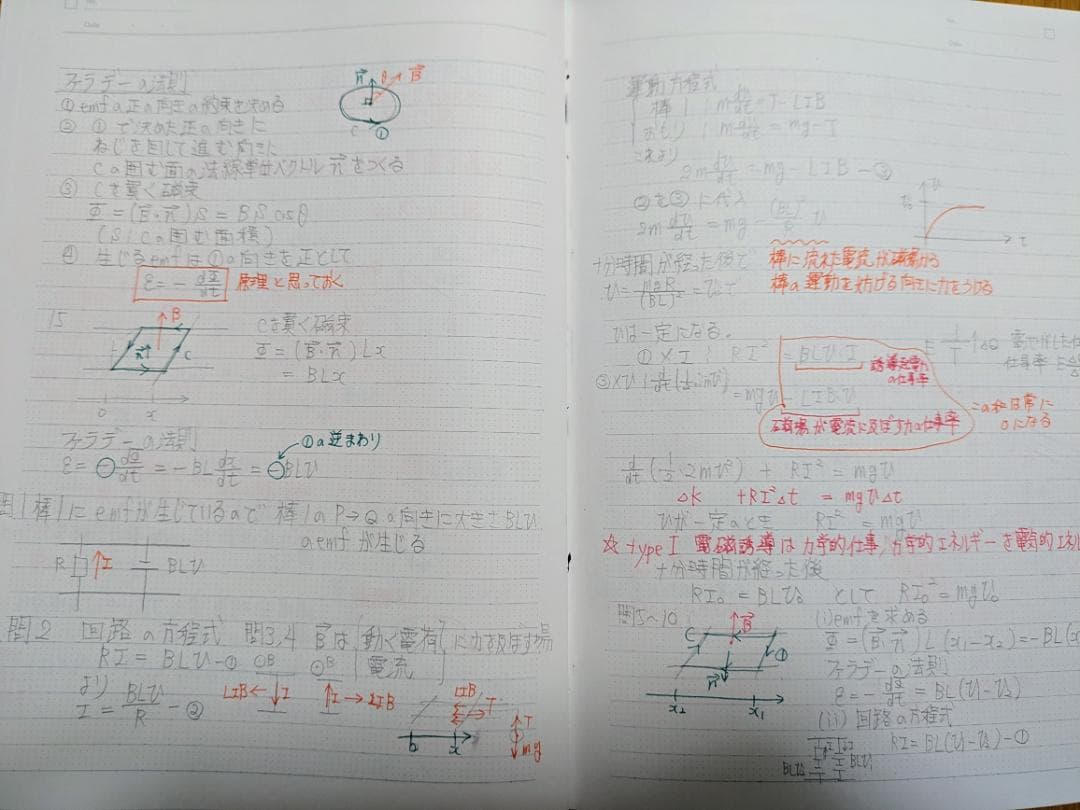 ファラデーの法則
① emfの正の向きの約束を決める
② ①で決めた正の向きに
ねじを回して進む向きに
Cの囲む面の法線単位ベクトル n をつくる
③ Cを貫く磁束
Φ = (B・n)S = BS cosθ
(S:Cの囲む面積)
④ 生じるemfは①の向きを正として
ε = - dΦ/dt 原理と思っておく
n θ B
C ①
15
B
n C
0 x
Cを貫く磁束
Φ = (B・n) Lx
= BLx
ファラデーの法則 ①の逆まわり
ε = - dΦ/dt = -BL dx/dt = -BLv
問1 棒1にemfが生じているので 棒1のP→Qの向きに大きさBLv
のemfが生じる
R I BLv
問2 回路の方程式 問3,4 Bは 動く電荷 に力を及ぼす場
電流
RI = BLv -①
より
I = BLv/R -②
B B
LIB ← I I → LIB
LIB T T
0 x mg
運動方程式
棒1 : m dv/dt = T - LIB
おもり : m dv/dt = mg - T
これより
2m dv/dt = mg - LIB -③
②を③に代入
2m dv/dt = mg - (BL)²/R v
v v₀ t
十分時間が経った後で
棒に流れた電流が磁場から
棒の運動を妨げる向きに力をうける
v = mgR/(BL)² = v₀で
vは一定になる。
①×I : RI² = BLv・I
誘導起電力の仕事率
③×v : d/dt(1/2・2mv²) = mgv - LIB・v
磁場が電流に及ぼす力の仕事率
この和は常に
0になる
d/dt(1/2・2mv²) + RI² = mgv
ΔK + RI²Δt = mgvΔt
vが一定のとき RI² = mgv
☆ type I 電磁誘導は力学的仕事,力学的エネルギーを電気的エネル
十分時間が経った後
RI₀ = BLv₀ として RI₀² = mgv₀
問5〜10
C B ①
n
x₂ x₁
(i) emfを求める
Φ = (B・n) L (x₁-x₂) = -BL(x
ファラデーの法則
ε = - dΦ/dt = BL(v₁-v₂)
(ii) 回路の方程式
RI = BL(v₁-v₂) -①
BLv₂ BLv₁